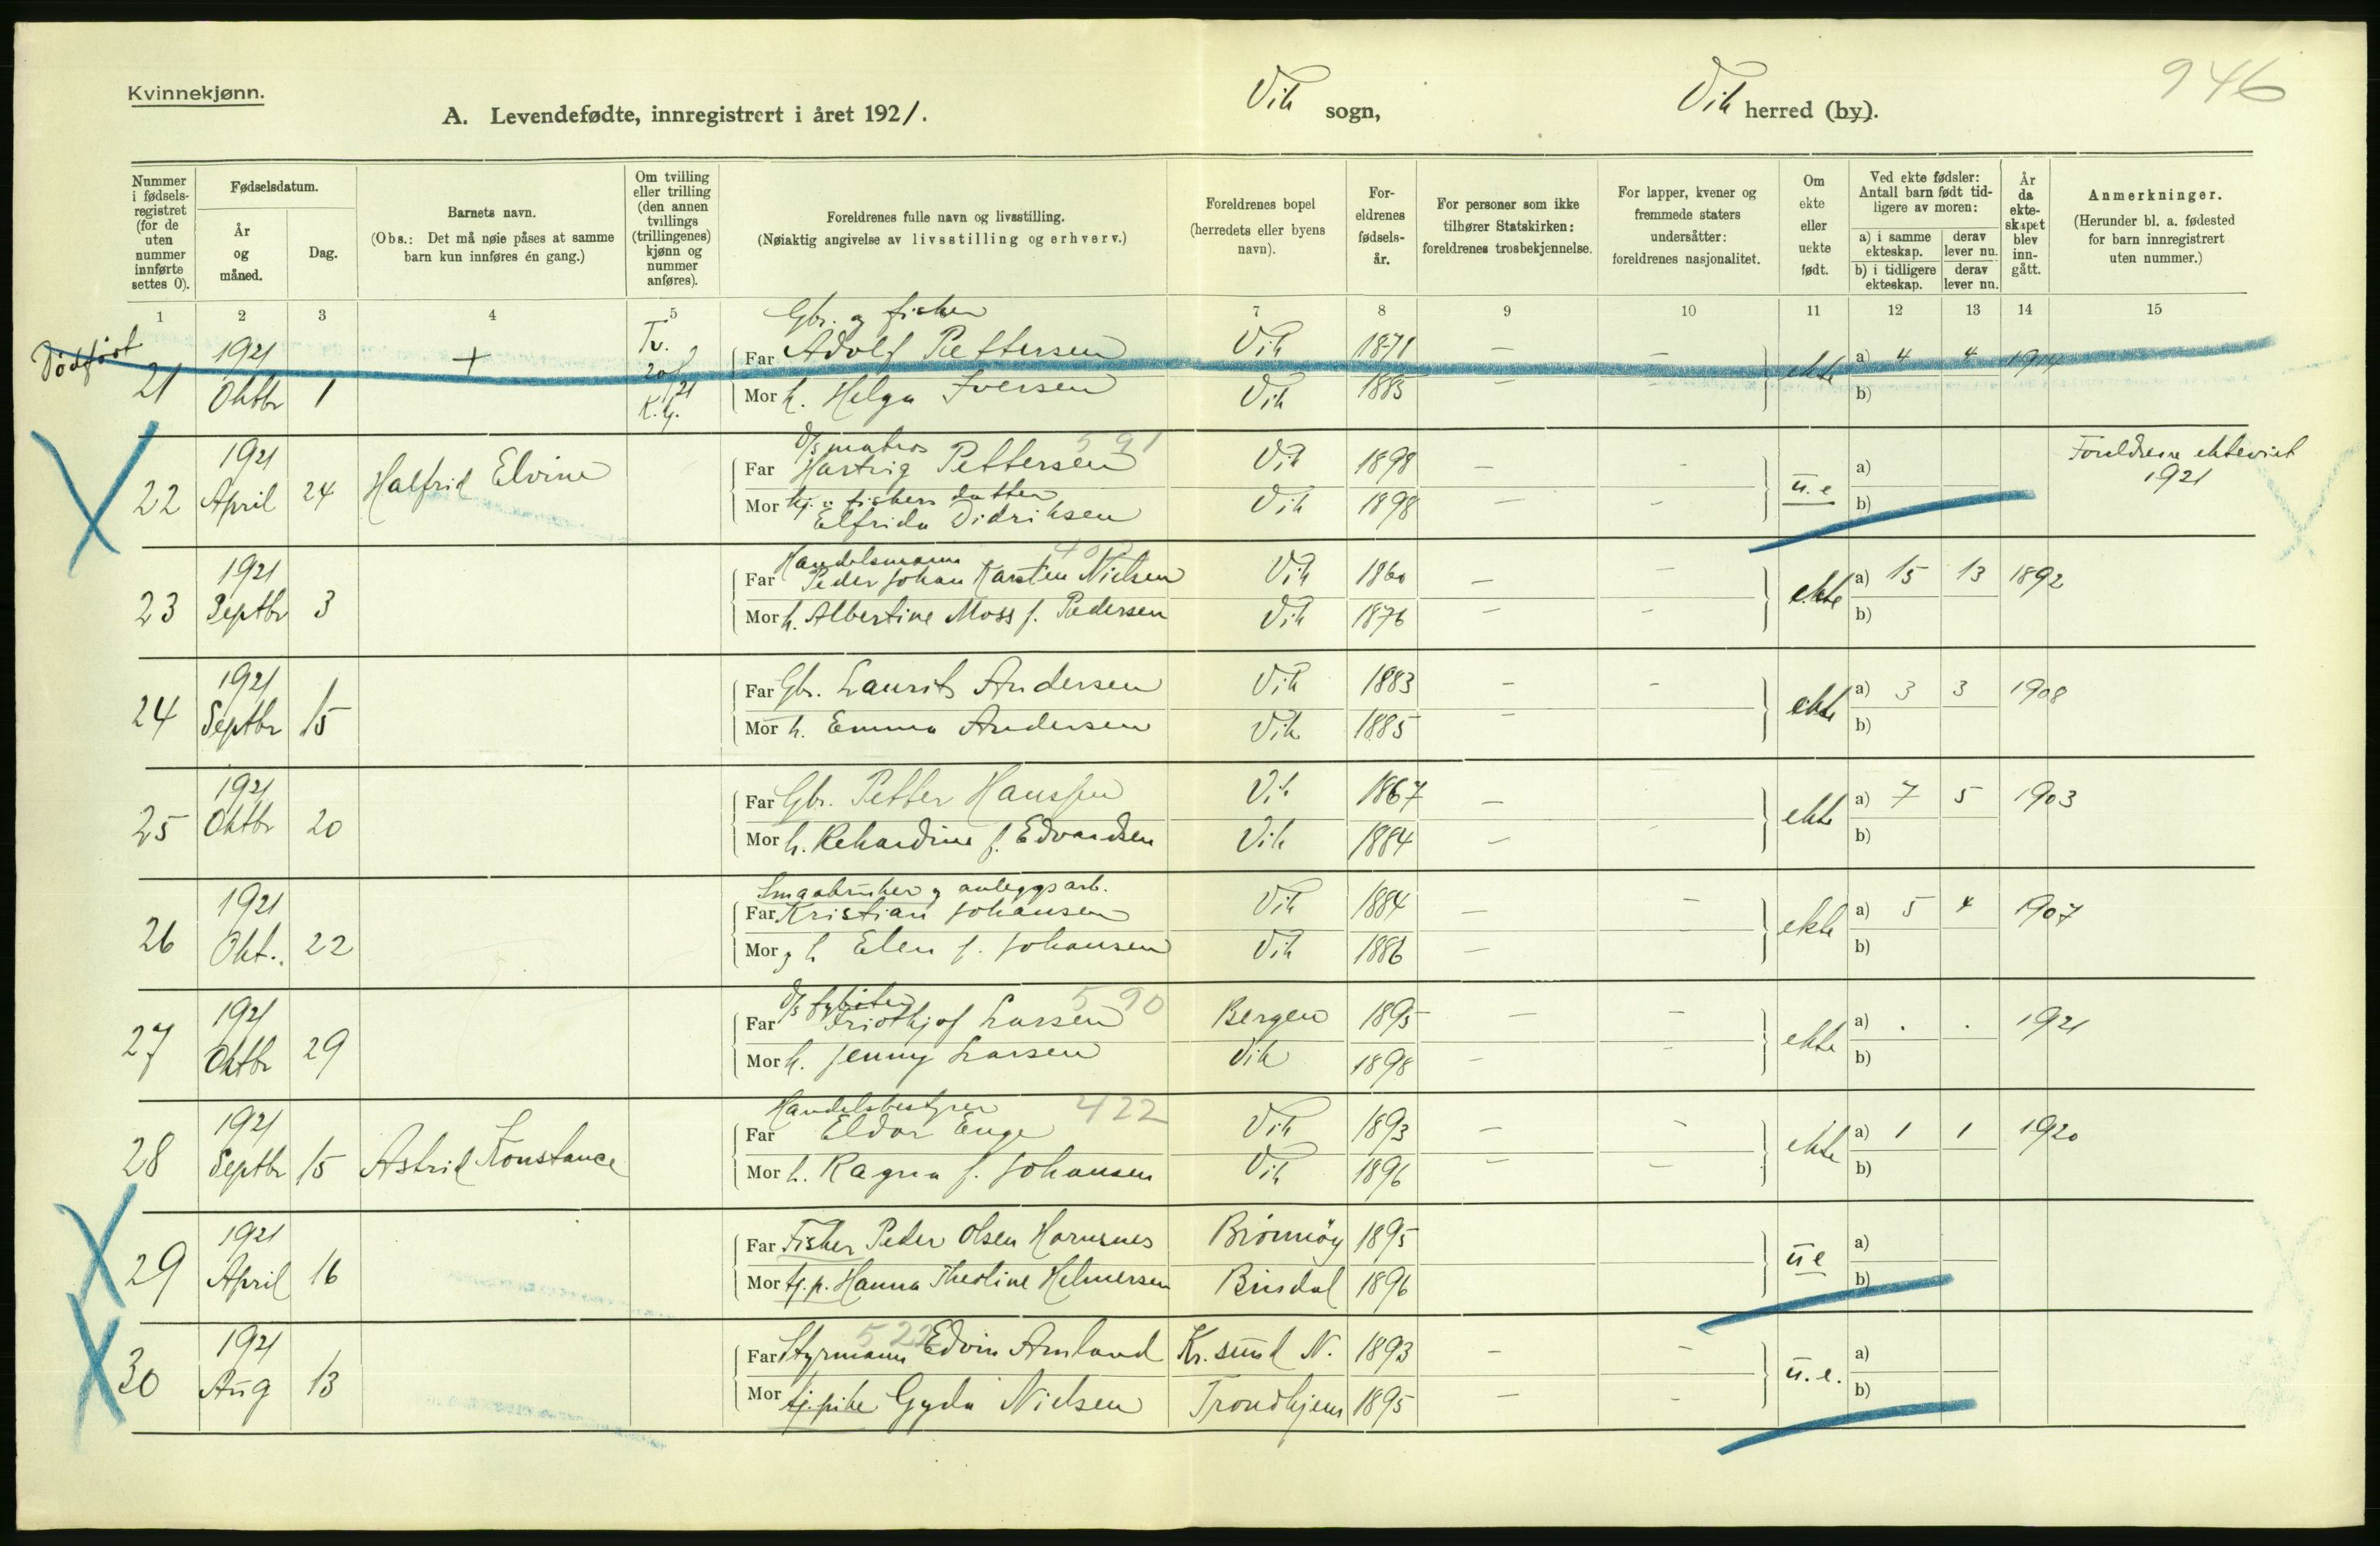 Kvinnekjønn.
946
A. Levendefødte, innregistrert i året 1921.
Vik sogn,
Vik herred (by).
Nummer i fødsels-registret (for de uten nummer innførte settes 0).
Fødselsdatum.
År og måned.
Dag.
Barnets navn.
(Obs.: Det må nøie påses at samme barn kun innføres én gang.)
Om tvilling eller trilling (den annen tvillings (trillingenes) kjønn og nummer anføres).
Foreldrenes fulle navn og livsstilling.
(Nøiaktig angivelse av livsstilling og erhverv.)
Foreldrenes bopel (herredets eller byens navn).
For-eldrenes fødsels-år.
For personer som ikke tilhører Statskirken: foreldrenes trosbekjennelse.
For lapper, kvener og fremmede staters undersåtter: foreldrenes nasjonalitet.
Om ekte eller uekte født.
Ved ekte fødsler: Antall barn født tid-ligere av moren:
a) i samme ekteskap.
derav lever nu.
b) i tidligere ekteskap.
derav lever nu.
År da ekte-skapet blev inn-gått.
Anmerkninger.
(Herunder bl. a. fødested for barn innregistrert uten nummer.)
1 2 3 4 5 7 8 9 10 11 12 13 14 15
Dødfødt
Gbr. og fisker
21 1921 Oktbr 1 + Tv. K.kj.
Far Adolf Pettersen Vik 1871 — — ekte a) 4 4 1914
Mor h. Helga Iversen Vik 1885 — — b)
D/s matros 591
22 1921 April 24 Halfrid Elvine
Far Hartvig Pettersen Vik 1898 — — u.e a) Foreldrene ekteviet 1921
Mor fiskers datter
Elfrida Didriksen Vik 1898 — — b)
Handelsmann
23 1921 Septbr 3
Far Peder Johan Karsten Nielsen Vik 1860 — — ekte a) 15 13 1892
Mor h. Albertine Moss f. Pedersen Vik 1876 — — b)
24 1921 Septbr 15
Far Gbr. Laurits Andersen Vik 1883 — — ekte a) 3 3 1908
Mor h. Emma Andersen Vik 1885 — b)
25 1921 Oktbr 20
Far Gbr. Petter Hanssen Vik 1867 — — ekte a) 7 5 1903
Mor h. Rekardine f. Edvardsen Vik 1884 — — b)
Smaabruker og anleggsarb.
26 1921 Okt. 22
Far Kristian Johansen Vik 1884 — — ekte a) 5 4 1907
Mor og h Elen f. Johansen Vik 1886 — — b)
D/s fyrbøter 590
27 1921 Oktbr 29
Far Friothjof Larsen Bergen 1895 — — ekte a) . . 1921
Mor h. Jenny Larsen Vik 1898 — — b)
Handelsbestyrer 422
28 1921 Septbr 15 Astrid Konstance
Far Eldor Enge Vik 1893 — — ekte a) 1 1 1920
Mor h. Ragna f. Johansen Vik 1896 — — b)
29 1921 April 16
Far Fisker Peder Olsen Hornsnes Brönnöy 1895 u e a)
Mor tj.p. Hanna Theoline Helmersen Bindal 1896 b)
522
30 1921 Aug 13
Far Styrmann Edvin Amland Kr.sund N. 1893 — — u.e. a)
Mor tj.pike Gyda Nielsen Trondhjem 1895 — — b)